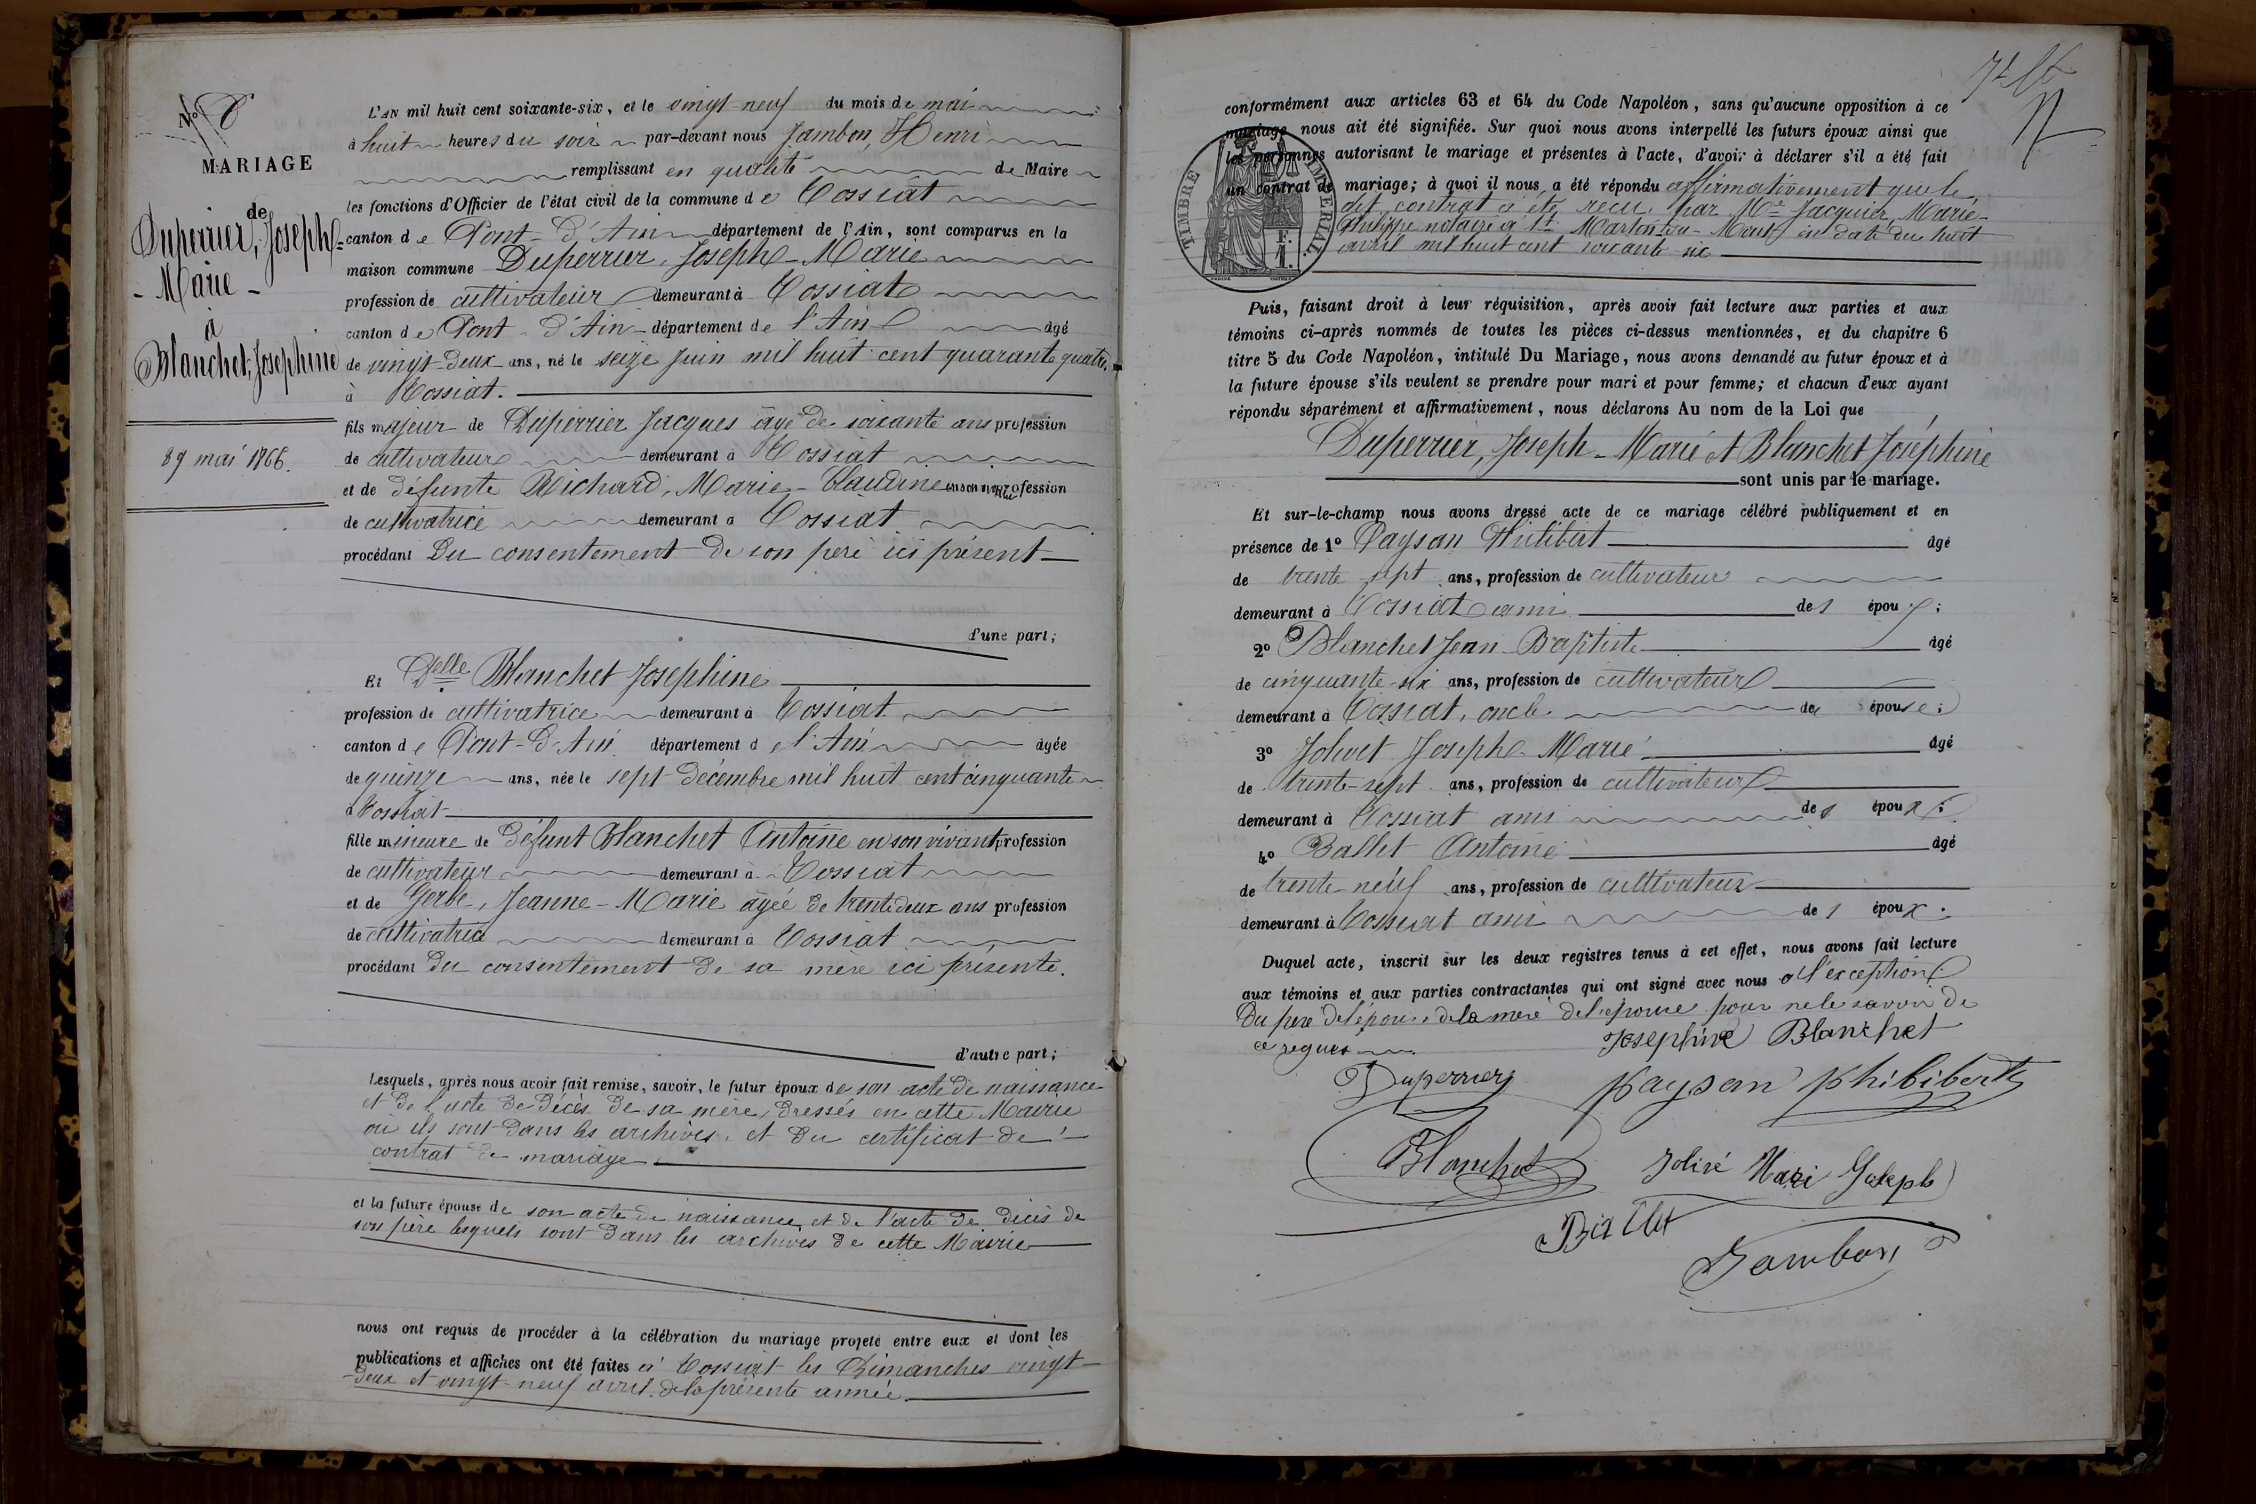 No 8
MARIAGE
de
Duperrier, Joseph-
- Marie -
à
Blanchet, Josephine
29 mai 1866.
L'AN mil huit cent soixante-six, et le vingt-neuf du mois de mai
à huit heures du soir par-devant nous Jambon, Henri
remplissant en qualité de Maire
les fonctions d'Officier de l'état civil de la commune de Tossiat
canton de Pont-d'Ain département de l'Ain, sont comparus en la
maison commune Duperrier, Joseph-Marie
profession de cultivateur demeurant à Tossiat
canton de Pont-d'Ain département de l'Ain âgé
de vingt-deux ans, né le seize juin mil huit cent quarante quatre,
à Tossiat.
fils majeur de Duperrier Jacques âgé de soixante ans profession
de cultivateur demeurant à Tossiat
et de défunte Richard, Marie-Claudine en son vivant profession
de cultivatrice demeurant à Tossiat
procédant Du consentement de son père ici présent
d'une part;
Et Delle Blanchet Josephine
profession de cultivatrice demeurant à Tossiat
canton de Pont-d'Ain département de l'Ain âgée
de quinze ans, née le sept décembre mil huit cent cinquante
à Tossiat
fille mineure de défunt Blanchet Antoine en son vivant profession
de cultivateur demeurant à Tossiat
et de Gerbe, Jeanne-Marie âgée de trente deux ans profession
de cultivatrice demeurant à Tossiat
procédant du consentement de sa mère ici présente.
d'autre part;
Lesquels, après nous avoir fait remise, savoir, le futur époux de son acte de naissance
et de l'acte de décès de sa mère, dressés en cette Mairie
où ils sont dans les archives, et du certificat de
contrat de mariage
et la future épouse de son acte de naissance et de l'acte de décès de
son père lesquels sont dans les archives de cette Mairie
nous ont requis de procéder à la célébration du mariage projeté entre eux et dont les
publications et affiches ont été faites à Tossiat les Dimanches vingt-
deux et vingt-neuf avril de la présente année
conformément aux articles 63 et 64 du Code Napoléon, sans qu'aucune opposition à ce
mariage nous ait été signifiée. Sur quoi nous avons interpellé les futurs époux ainsi que
les personnes autorisant le mariage et présentes à l'acte, d'avoir à déclarer s'il a été fait
un contrat de mariage; à quoi il nous a été répondu affirmativement que le
dit contrat a été reçu par Me Jacquier, Marie-
Philippe notaire à St Martin-du-Mont en date du huit
avril mil huit cent soixante-six
TIMBRE IMPERIAL.
1 F.
Puis, faisant droit à leur réquisition, après avoir fait lecture aux parties et aux
témoins ci-après nommés de toutes les pièces ci-dessus mentionnées, et du chapitre 6
titre 5 du Code Napoléon, intitulé Du Mariage, nous avons demandé au futur époux et à
la future épouse s'ils veulent se prendre pour mari et pour femme; et chacun d'eux ayant
répondu séparément et affirmativement, nous déclarons Au nom de la Loi que
Duperrier, Joseph-Marie et Blanchet Joséphine
sont unis par le mariage.
Et sur-le-champ nous avons dressé acte de ce mariage célébré publiquement et en
présence de 1º Paysan Philibert âgé
de trente sept ans, profession de cultivateur
demeurant à Tossiat ami des époux;
2º Blanchet Jean-Baptiste âgé
de cinquante-six ans, profession de cultivateur
demeurant à Tossiat, oncle de épouse;
3º Jolivet Joseph-Marie âgé
de trente-sept ans, profession de cultivateur
demeurant à Tossiat ami des époux;
4º Ballet Antoine âgé
de trente-neuf ans, profession de cultivateur
demeurant à Tossiat ami des époux.
Duquel acte, inscrit sur les deux registres tenus à cet effet, nous avons fait lecture
aux témoins et aux parties contractantes qui ont signé avec nous à l'exception
Du père de l'époux de la mère de l'épouse pour ne le savoir de
ce requis
Josephine Blanchet
Duperrier paysan philibert
Blanchet Jolivé Mari Joseph
Ballet
Jambon